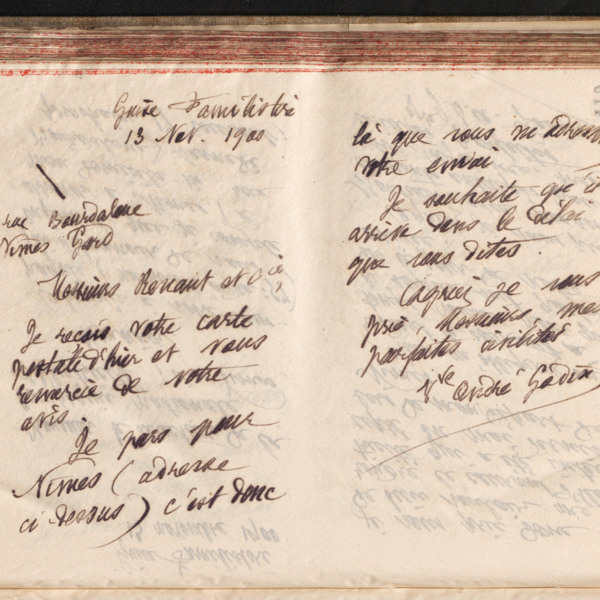 Guise Familistère
13 Nov. 1900
rue Bourdaloue
Nîmes Gard
Messieurs Renaut et Cie,
Je reçois votre carte
postale d'hier et vous
remercie de votre
avis.
Je pars pour
Nîmes (adresse
ci-dessus) c'est donc
là que vous m'adress
votre envoi.
Je souhaite que
arrive dans le délai
que vous dites.
Agréez je vous
prie, Messieurs, mes
parfaites civilités
Vve André Godin